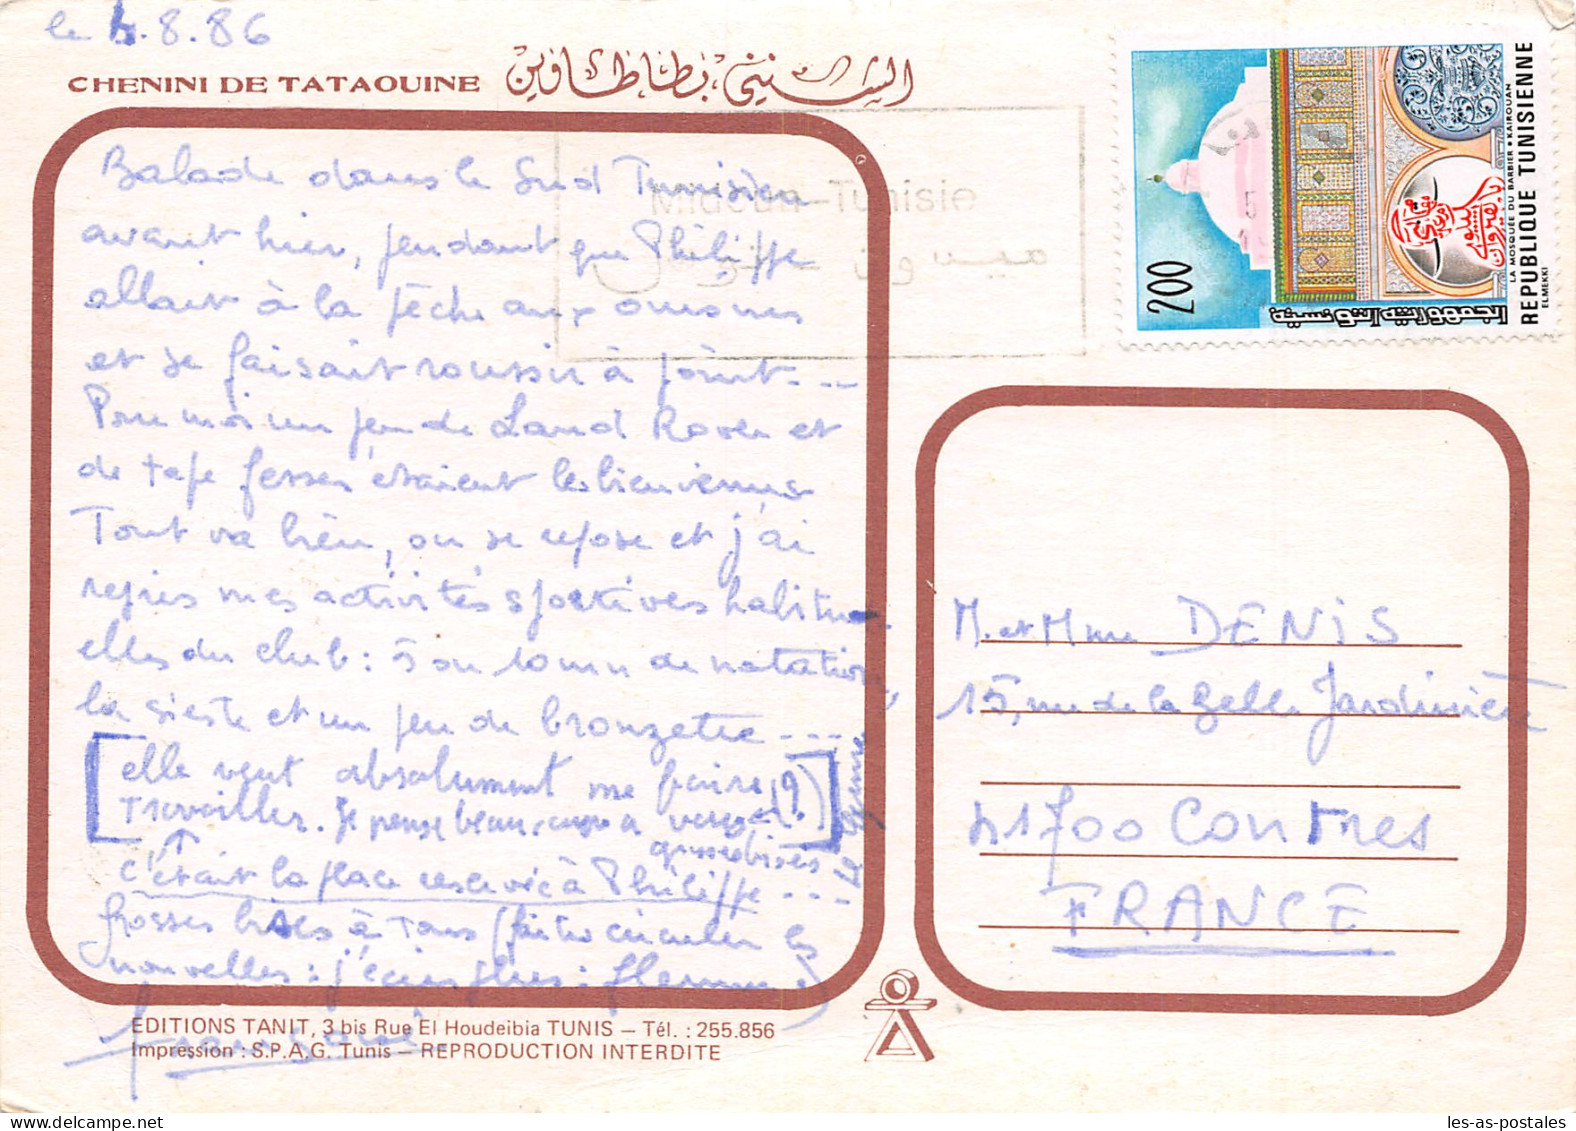 le 4.8.86
CHENINI DE TATAOUINE الشنني بطاطاوين
Balade dans le Sud Tunisien
avant hier, pendant que Philippe
allait à la pêche aux oursins
et se faisait roussir à point...
Pour moi un peu de Land Rover et
de tape fesses étaient les bienvenus
Tout va bien, on se repose et j'ai
repris mes activités sportives habitu-
elles du club : 5 ou 10 mn de natation,
la sieste et un peu de bronzette ....
elle veut absolument me faire
travailler. Je pense beaucoup à vous (?)
grosses bises
c'était la place réservée à Philippe ...
Grosses bises à tous (faites circuler les
nouvelles : j'écris plus : flemme)
Midoun-Tunisie
ميدون تونس
200
الجمهورية التونسية
REPUBLIQUE TUNISIENNE
LA MOSQUEE DU BARBIER • KAIROUAN
ELMEKKI
M. et Mme DENIS
15, rue de la Belle Jardinière
41700 Contres
FRANCE
EDITIONS TANIT, 3 bis Rue El Houdeibia TUNIS – Tél. : 255.856
Impression : S.P.A.G. Tunis – REPRODUCTION INTERDITE
les-as-postales